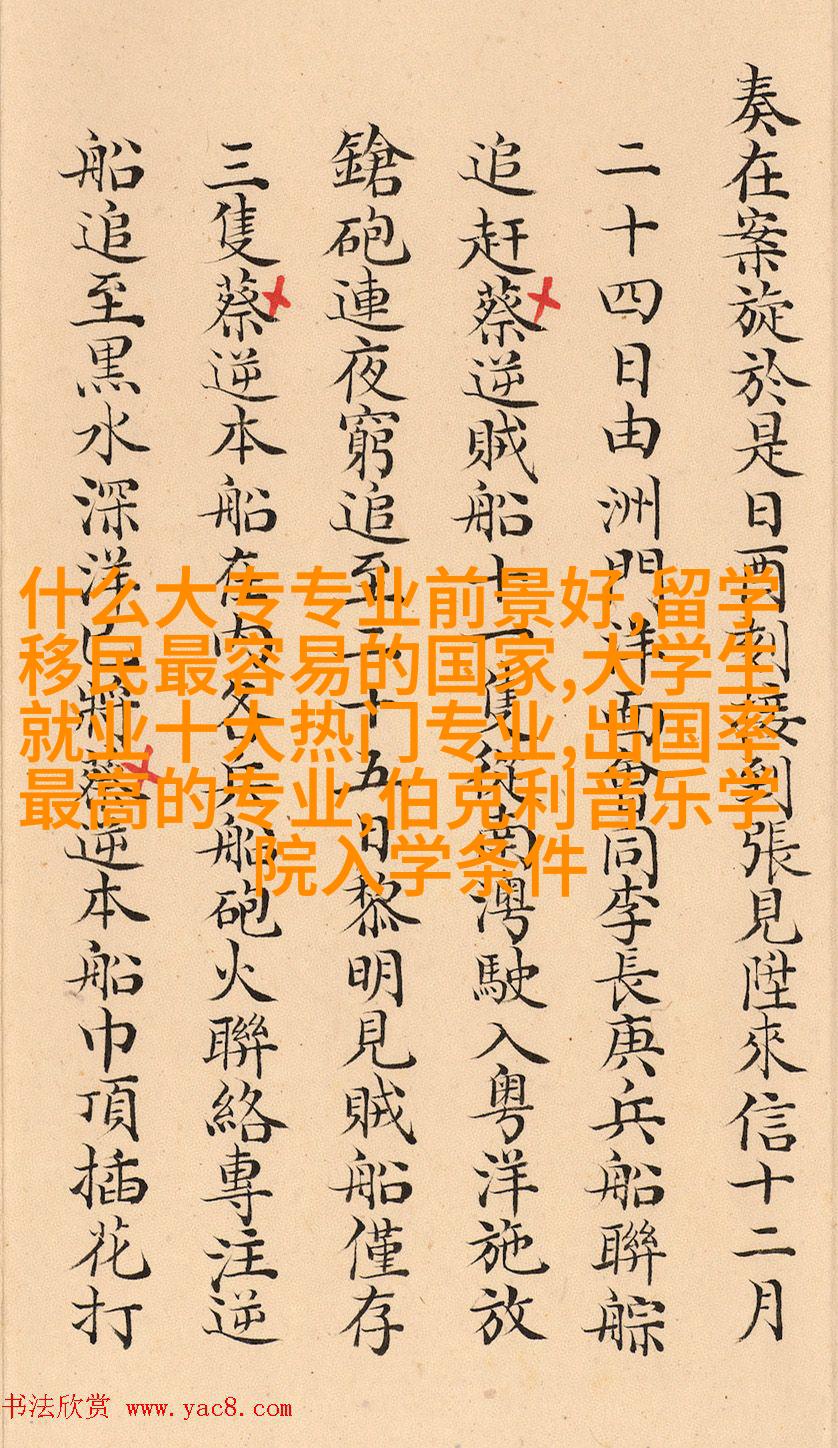 奏在案旋於是日酉刻接到張見陞來信十二月
二十四日由洲門洋面會同李長庚兵船聯䑸
追赶蔡逆賊船十一隻從南灣駛入粤洋施放
鎗砲連夜窮追至二十五日黎明見賊船僅存
三隻蔡逆本船在内各兵船砲火聯絡專注逆
船追至黒水深洋已將蔡逆本船巾頂插花打
什么大专专业前景好,留学
移民最容易的国家,大学生
就业十大热门专业,出国率
最高的专业,伯克利音乐学
院入学条件
书法欣赏 www.yac8.com